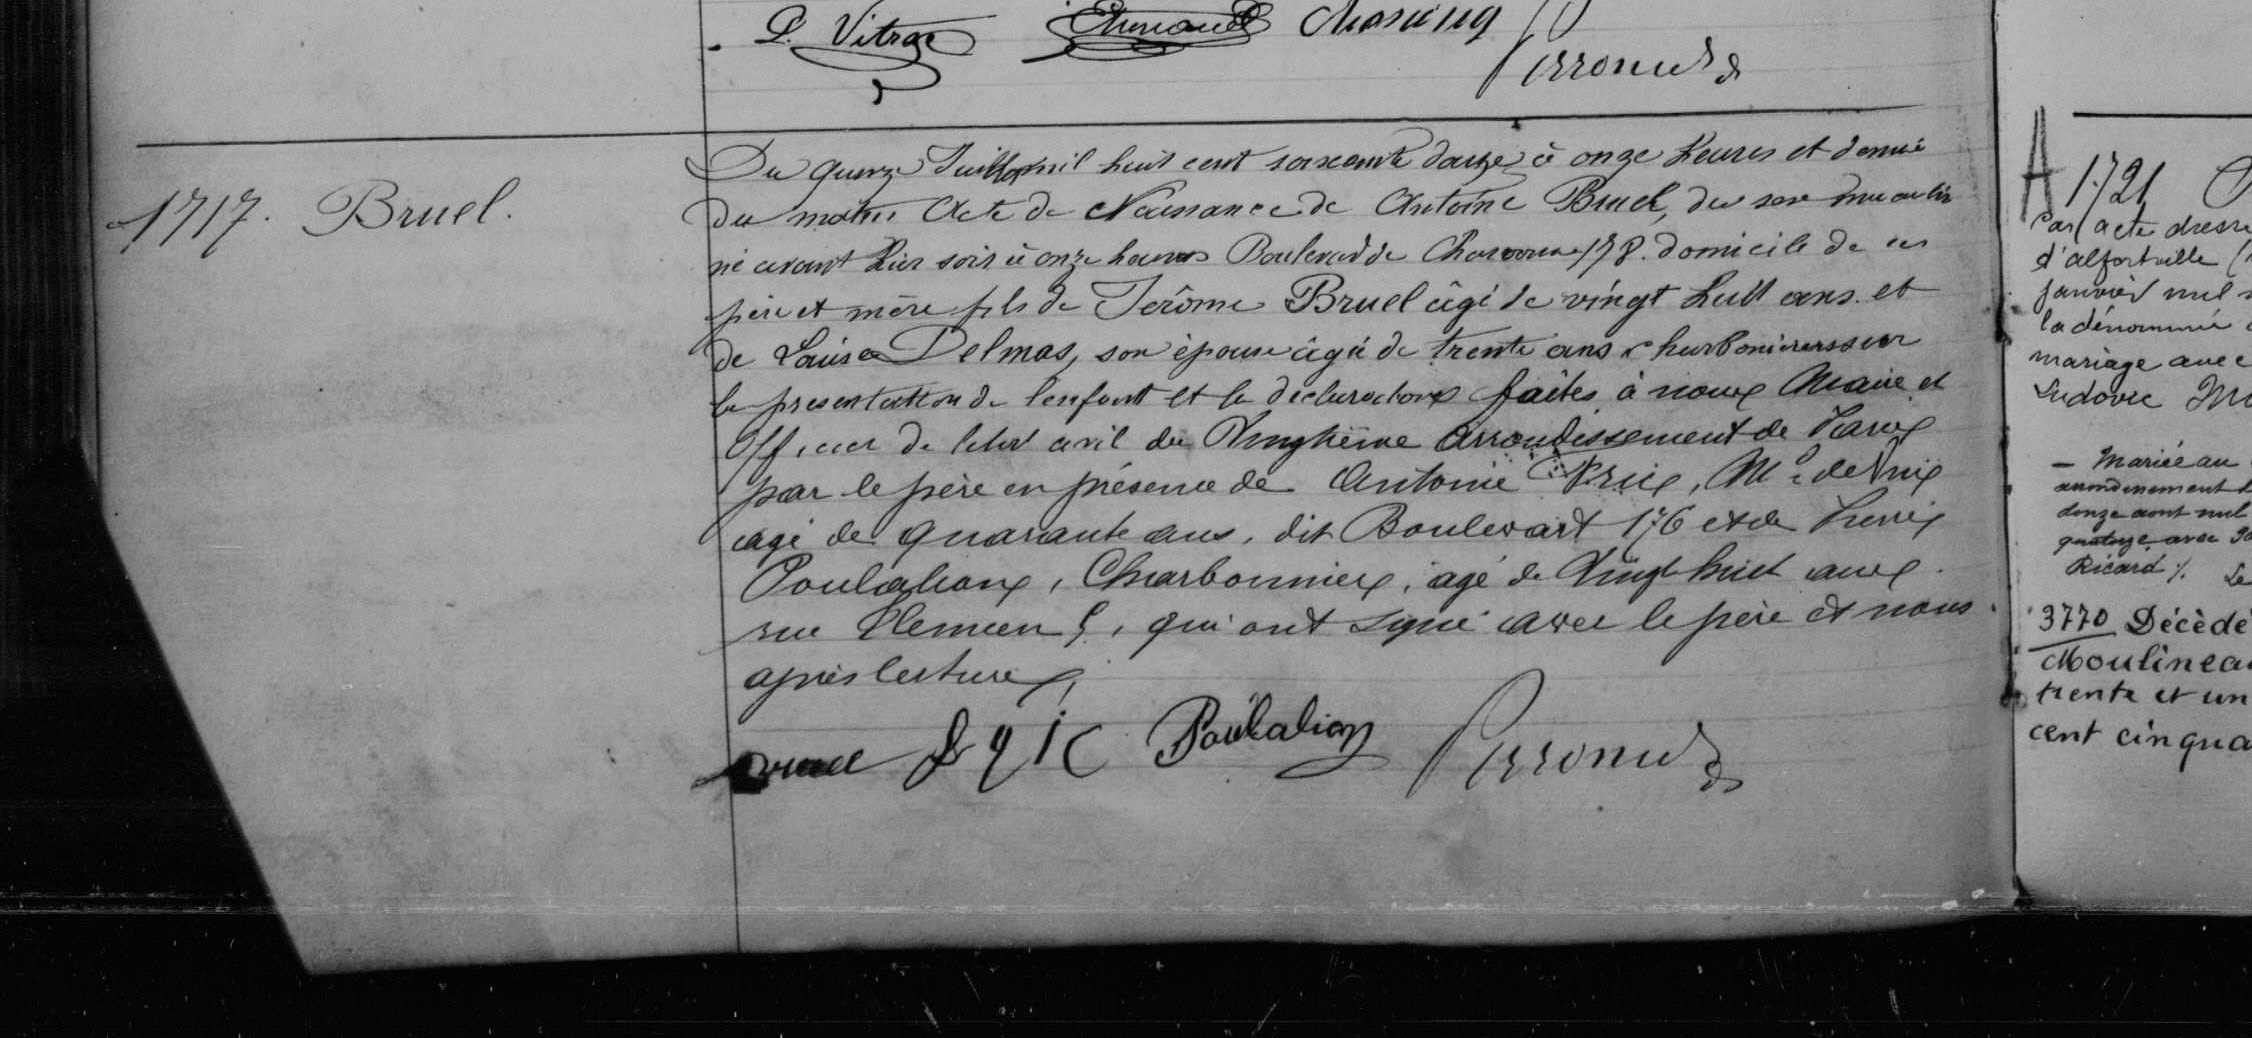 P. Vitrac
Perronnet
1717. Bruel.
Du quinze Juillet mil huit cent soixante douze à onze heures et demie
du matin Acte de Naissance de Antoine Bruel, du sexe masculin
né avant hier soir à onze heures Boulevard de Charonne 178. domicile de ses
père et mère fils de Jérôme Bruel âgé de vingt huit ans et
de Louise Delmas, son épouse âgée de trente ans charbonniers sur
la présentation de l'enfant et la déclaration faites à nous Maire et
Officier de l'état civil du Vingtième arrondissement de Paris
par le père en présence de Antoine, Md de Vins
agé de quarante ans, dit Boulevart 176 et de Pierre
Poulalion, Charbonnier, agé de Vingt huit ans
rue, qui ont signé avec le père et nous
après lecture,
Bruel Poulalion Perronnet
A 1721
Par acte dressé
d'alfortville
janvier mil
la dénommé
mariage avec
Ludovic
- Mariée au
arrondissement
douze aout mil
quatorze avec
Ricard ./. Le
3770 Décédé
Moulineau
trente et un
cent cinqua